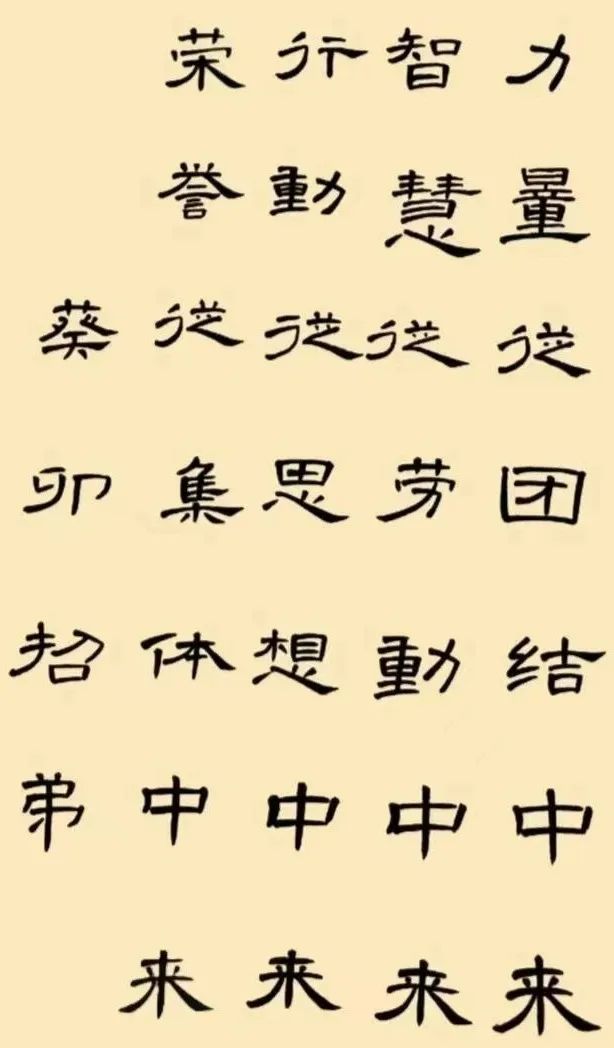 力量從团结中来
智慧從劳動中来
行動從思想中来
荣誉從集体中来
葵卯招弟